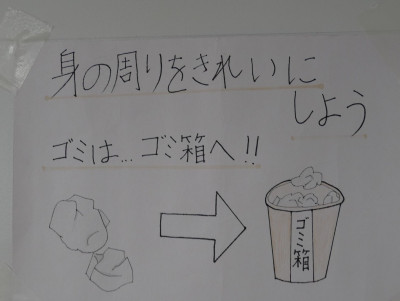 身の周りをきれいに
しよう
ゴミは…ゴミ箱へ!!
ゴミ箱